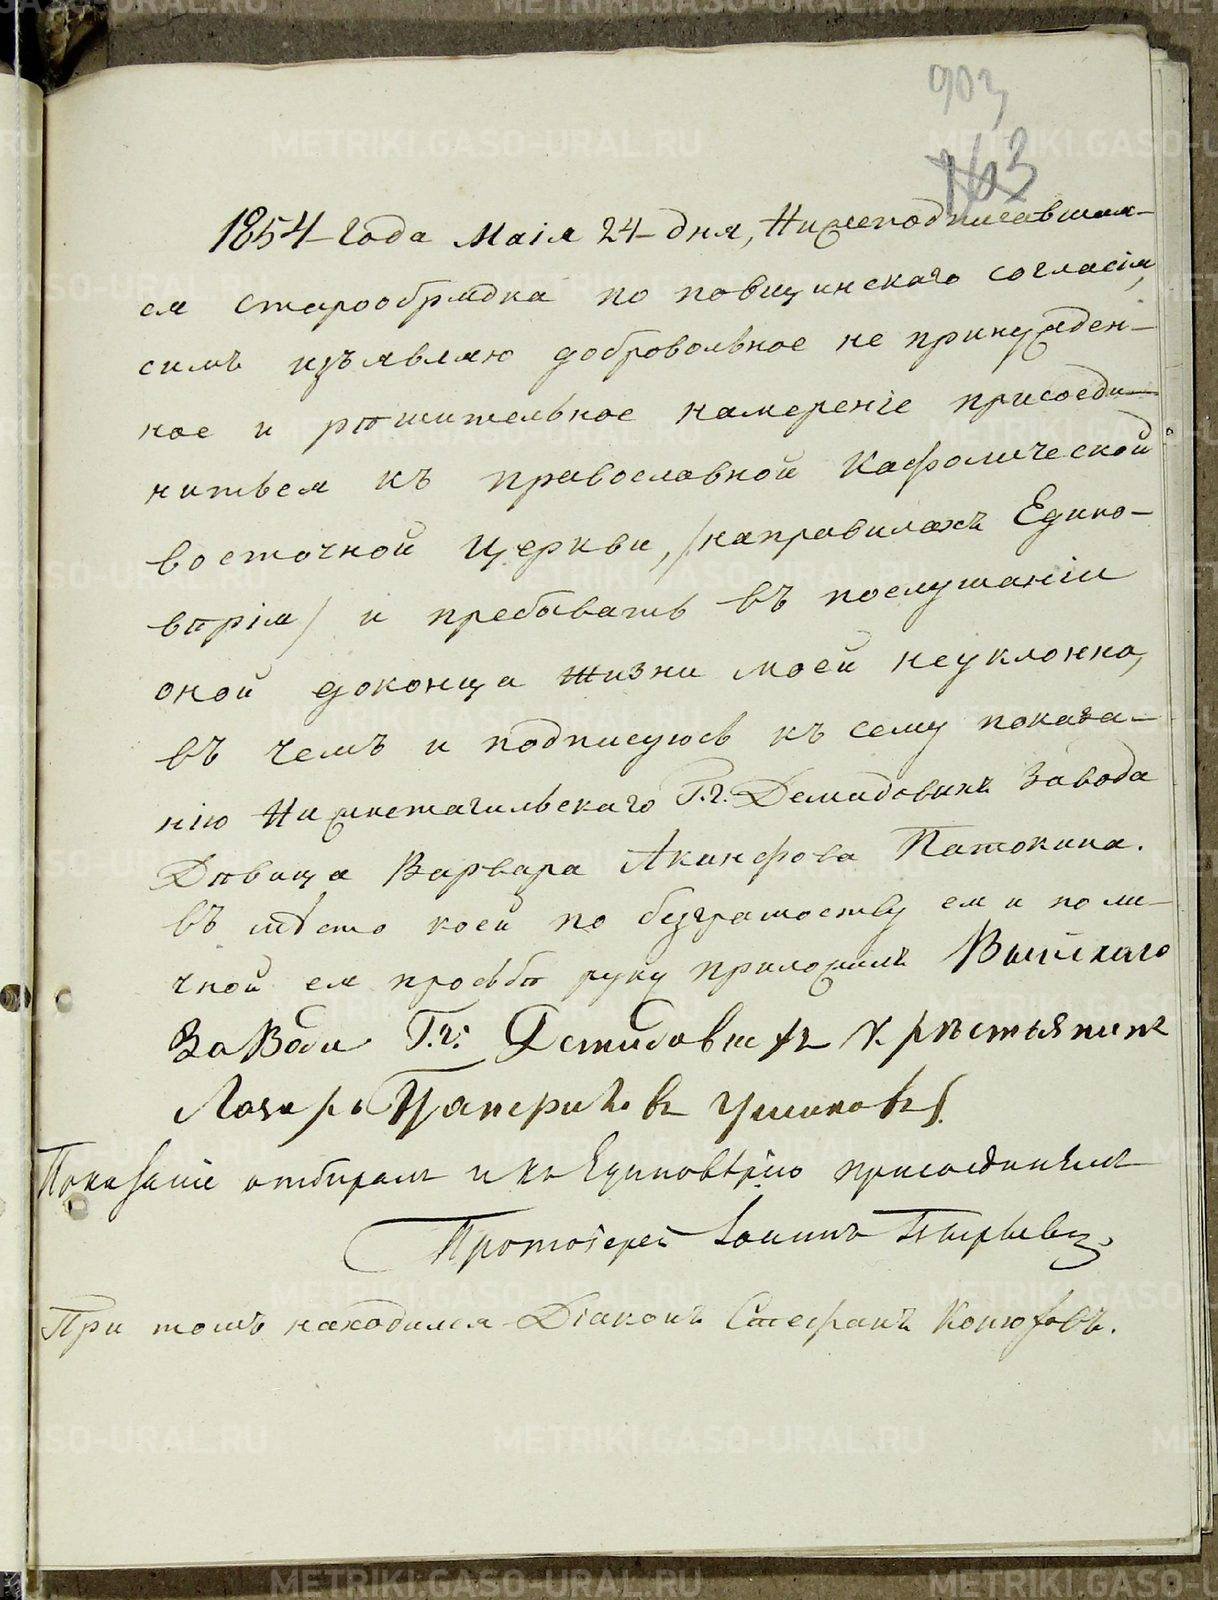 903
163
1854 года Маія 24 дня, Нижеподписавшая-
ся старообрядка по повщинскаго согласія,
симъ изъявляю добровольное не принужден-
ное и рѣшительное намереніе присоеди-
ниться къ православной Кафолической
восточной Церкви, /направилахъ Едино-
вѣрія/ и пребывать въ послушаніи
оной доконца жизни моей неуклонно,
въ чемъ и подписуюсь къ сему показа-
нію Нижнетагильскаго Г.г. Демидовыхъ Завода
Дѣвица Варвара Акинфова Патокина.
въ мѣсто коей по безграмоству ея и по ли-
чной ея просьбѣ руку приложилъ Выйскаго
Завода Г.г. Демидовыхъ крѣстьянинъ
Лазарь Ушаковъ
Показаніе отбиралъ и къ Единовѣрію присоединялъ
Протоіерей Іоаннъ Пырьевъ
При томъ находился Діаконъ Стефанъ Конюховъ.
METRIKI.GASO-URAL.RU